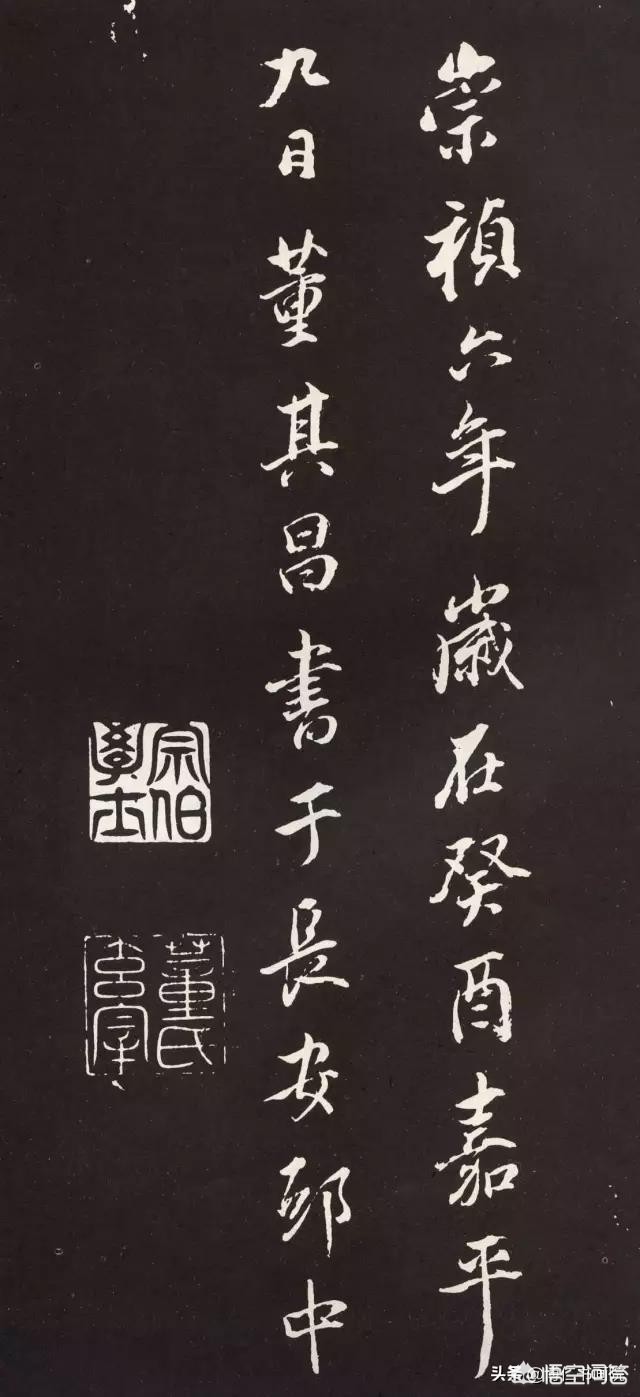 崇禎六年歲在癸酉嘉平
九日董其昌書于長安邸中
宗伯學士
董氏玄宰
头条 @悟空问答